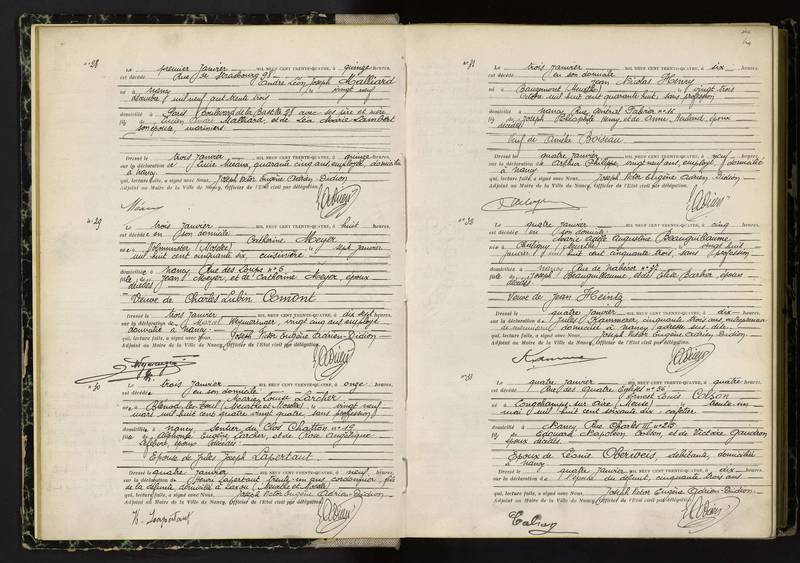 n° 28
Le premier janvier MIL NEUF CENT TRENTE-QUATRE, à quinze heures,
est décédé Rue de Strasbourg 98
André Léon Joseph Malliard
né à Nancy le vingt neuf
décembre mil neuf cent trente trois
domicilié à Paris boulevard de la Bastille 28 avec ses père et mère
fils de Lucien André Malliard, et de Léa Marie Lambert
son épouse, mariniers
Dressé le trois janvier MIL NEUF CENT TRENTE-QUATRE, à quinze heures,
sur la déclaration de quarante cinq ans, employé, domicilié
à Nancy
qui, lecture faite, a signé avec Nous, Joseph Victor Eugène Adrien-Didion
Adjoint au Maire de la Ville de Nancy, Officier de l'Etat civil par délégation.
n° 29
Le trois janvier MIL NEUF CENT TRENTE-QUATRE, à huit heures,
est décédée en son domicile
Catherine Meyer
née à Volmunster (Moselle) le sept janvier
mil huit cent cinquante six, cuisinière
domiciliée à Nancy Rue des Loups n° 6
fille de Jean Meyer, et de Catherine Meyer, époux
décédés
Veuve de Charles Lubin Comont
Dressé le trois janvier MIL NEUF CENT TRENTE-QUATRE, à dix sept heures,
sur la déclaration de Marcel Weymeringer, vingt cinq ans employé
domicilié à Nancy
qui, lecture faite, a signé avec Nous, Joseph Victor Eugène Adrien-Didion
Adjoint au Maire de la Ville de Nancy, Officier de l'Etat civil par délégation.
n° 30
Le trois janvier MIL NEUF CENT TRENTE-QUATRE, à onze heures,
est décédée en son domicile
Marie Louise Larcher
née à Blénod les Toul (Meurthe et Moselle) le vingt neuf
mars mil huit cent quatre vingt quatre, sans profession
domiciliée à Nancy sentier du Clos Chatton n° 19
fille de Alphonse Eugène Larcher, et de Rose Angélique
Lefebvre, époux décédés
Epouse de Jules Joseph Lapertaut
Dressé le quatre janvier MIL NEUF CENT TRENTE-QUATRE, à neuf heures,
sur la déclaration de Henri Lapertaut trente un ans cordonnier, fils
de la défunte, domicilié à Laxou (Meurthe et Moselle)
qui, lecture faite, a signé avec Nous, Joseph Victor Eugène Adrien-Didion
Adjoint au Maire de la Ville de Nancy, Officier de l'Etat civil par délégation.
H. Lapertaut
n° 31
Le trois janvier MIL NEUF CENT TRENTE-QUATRE, à six heures,
est décédé en son domicile
Jean Nicolas Henry
né à (Meurthe) le vingt trois
octobre mil huit cent quarante huit, sans profession
domicilié à Nancy Rue Général Fabvier n° 16
fils de Joseph Henry et de Anne époux
décédés
Veuf de Amélie Boiseau
Dressé le quatre janvier MIL NEUF CENT TRENTE-QUATRE, à neuf heures,
sur la déclaration de Arthur Philippe, vingt neuf ans, employé, domicilié
à Nancy
qui, lecture faite, a signé avec Nous, Joseph Victor Eugène Adrien-Didion
Adjoint au Maire de la Ville de Nancy, Officier de l'Etat civil par délégation.
Le quatre janvier MIL NEUF CENT TRENTE-QUATRE, à cinq heures,
est décédée en son domicile
Marie Adèle Augustine Beauguillaume
née à Chaligny (Meurthe) le vingt huit
janvier mil huit cent cinquante trois, sans profession
domiciliée à Nancy Rue de Nabécor n° 92
fille de Joseph Beauguillaume, et de Elise Barbier, époux
décédés
Veuve de Jean Heintz
Dressé le quatre janvier MIL NEUF CENT TRENTE-QUATRE, à dix heures,
sur la déclaration de Jules Kammerer, cinquante trois ans, entrepreneur
de domicilié à Nancy adresse sus dite
qui, lecture faite, a signé avec Nous, Joseph Victor Eugène Adrien-Didion
Adjoint au Maire de la Ville de Nancy, Officier de l'Etat civil par délégation.
n° 33
Le quatre janvier MIL NEUF CENT TRENTE-QUATRE, à quatre heures,
est décédé Rue des Quatre Eglises n° 56
Ernest Louis Colson
né à Longchamps sur Aire (Meuse) le trente un
mai mil huit cent soixante dix, cafetier
domicilié à Nancy Rue Charles III n° 25
fils de Edouard Napoléon Colson, et de Victoire Gaudron
époux décédés
Epoux de Léonie Oberweis, débitante, domiciliée
à Nancy
Dressé le quatre janvier MIL NEUF CENT TRENTE-QUATRE, à dix heures,
sur la déclaration de l'épouse du défunt, cinquante trois ans
qui, lecture faite, a signé avec Nous, Joseph Victor Eugène Adrien-Didion
Adjoint au Maire de la Ville de Nancy, Officier de l'Etat civil par délégation.